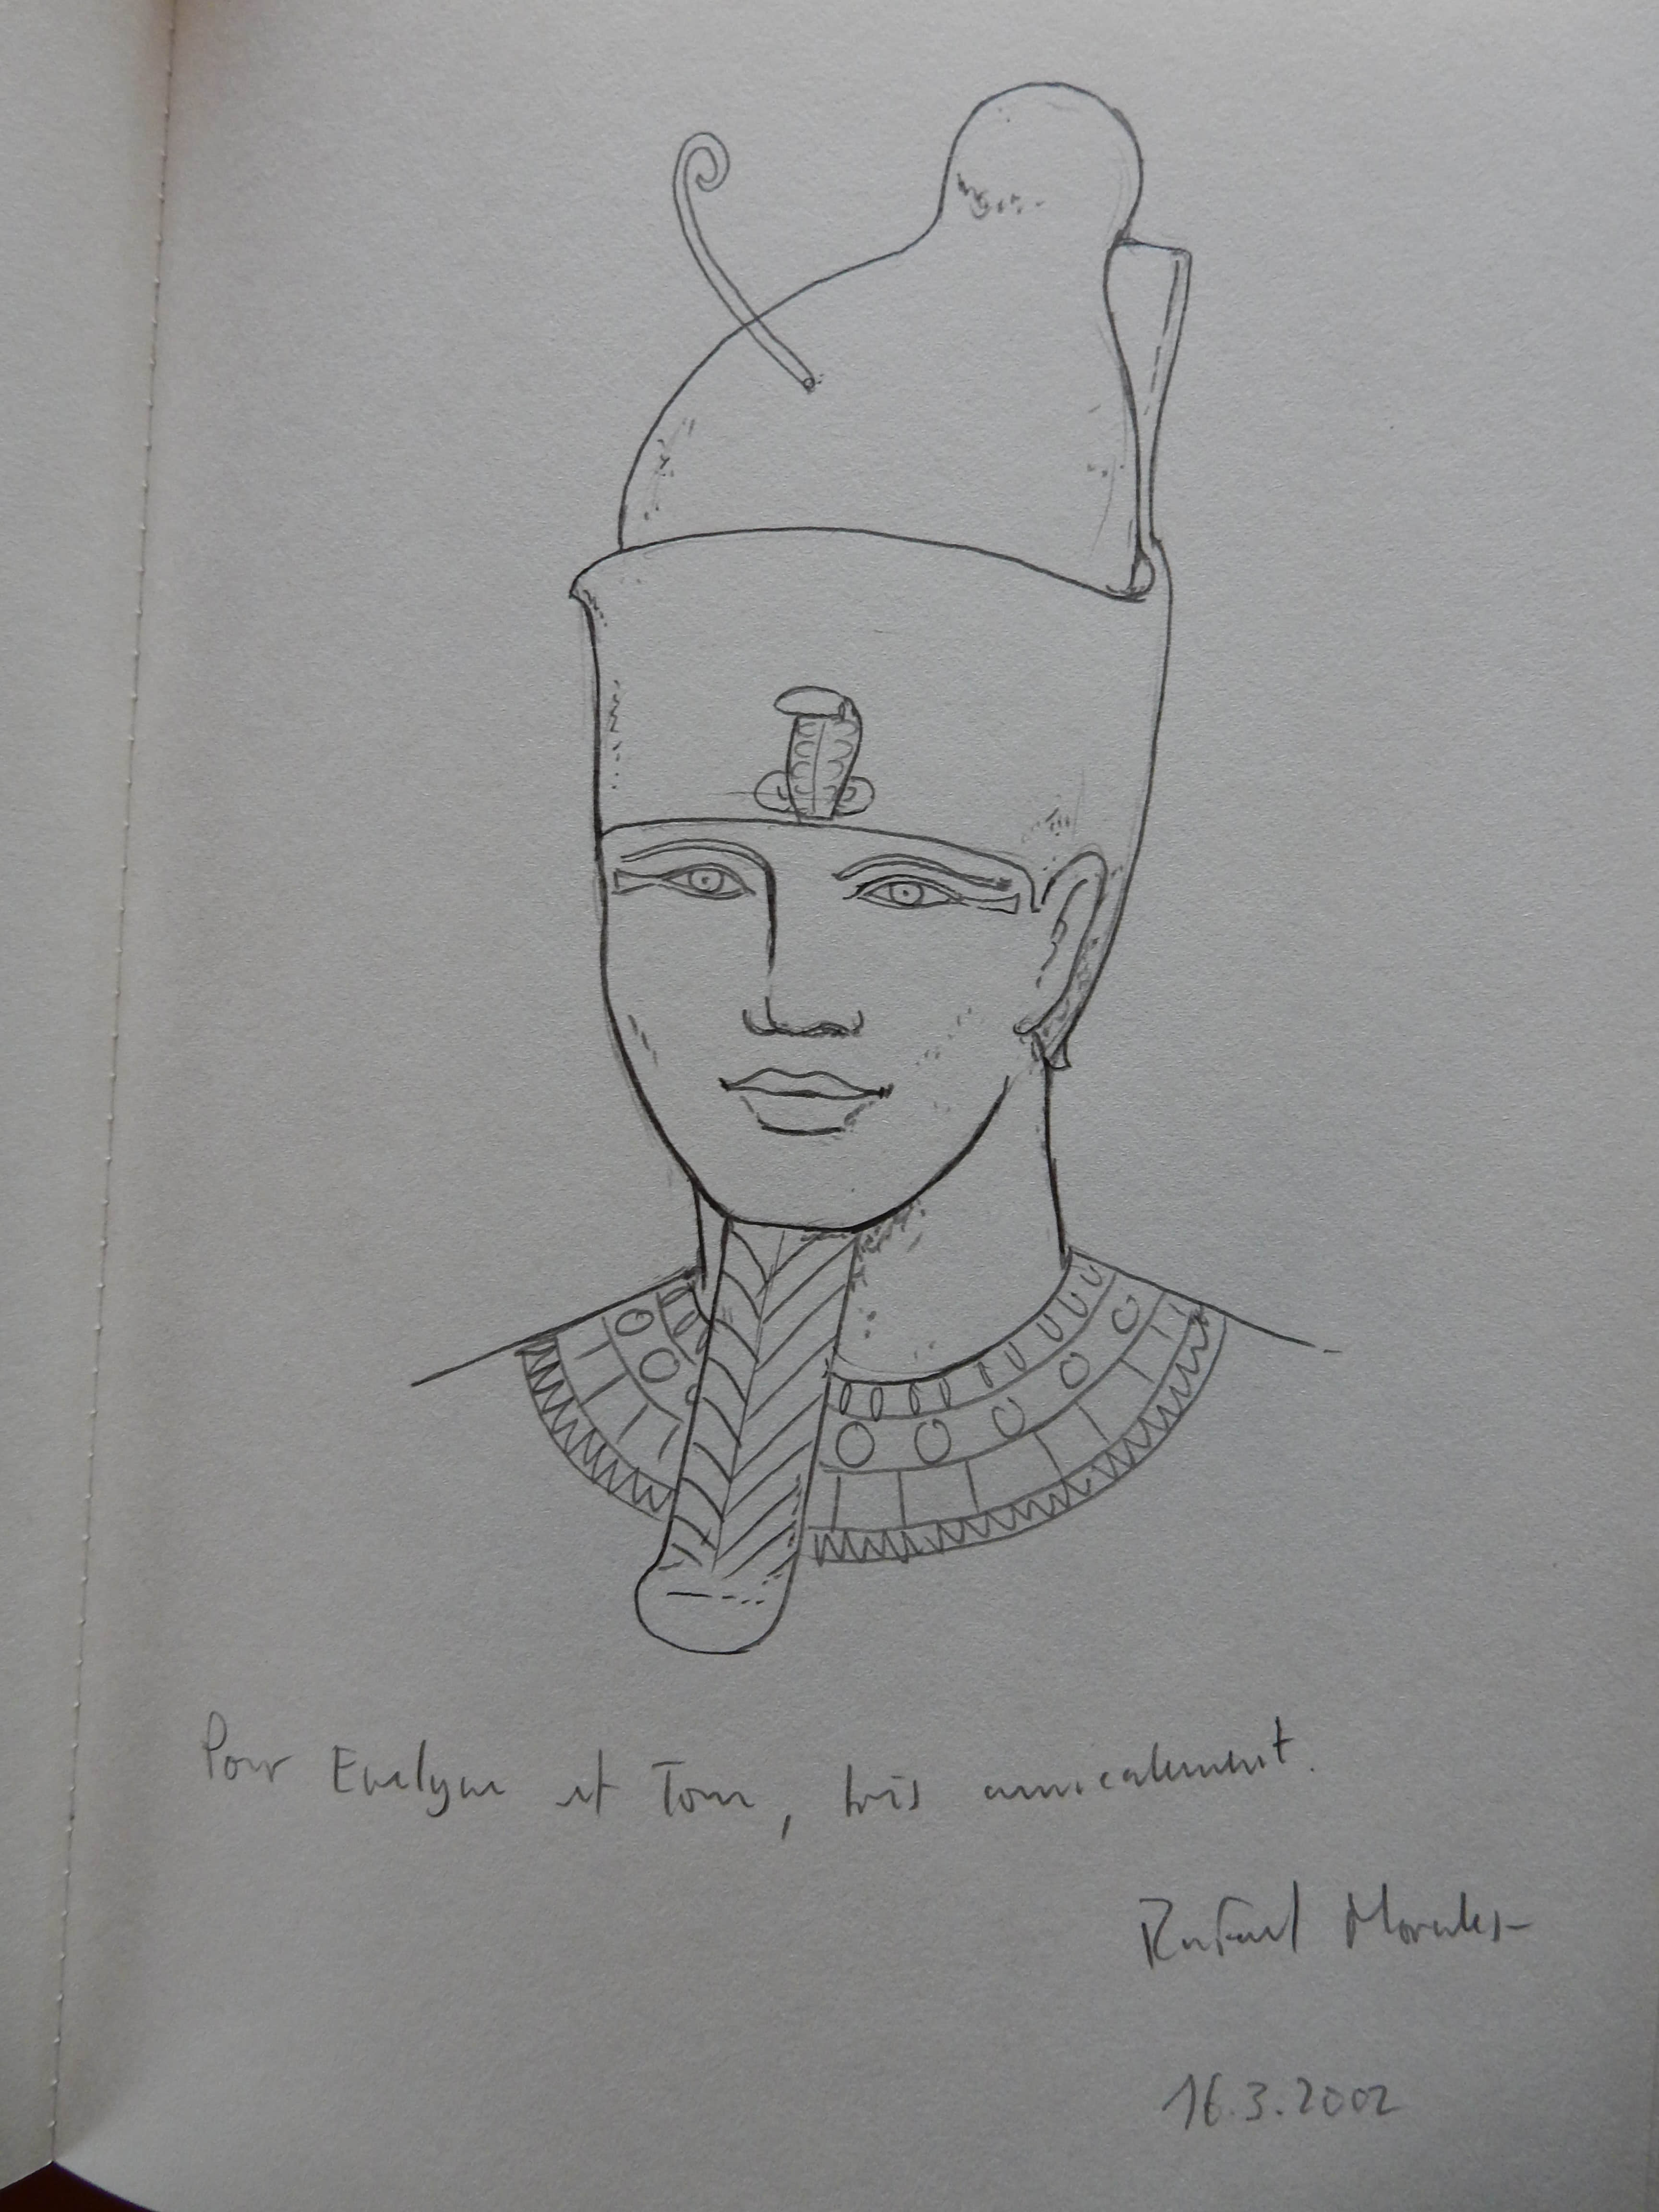 Pour Evelyne et Tom, très amicalement.
Rafael Morales
16.3.2002